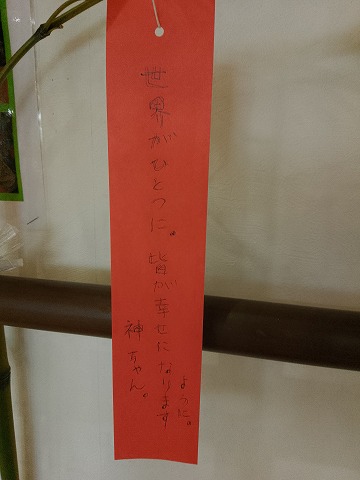 世界がひとつに。皆が幸せになります
ように。
神ちゃん。